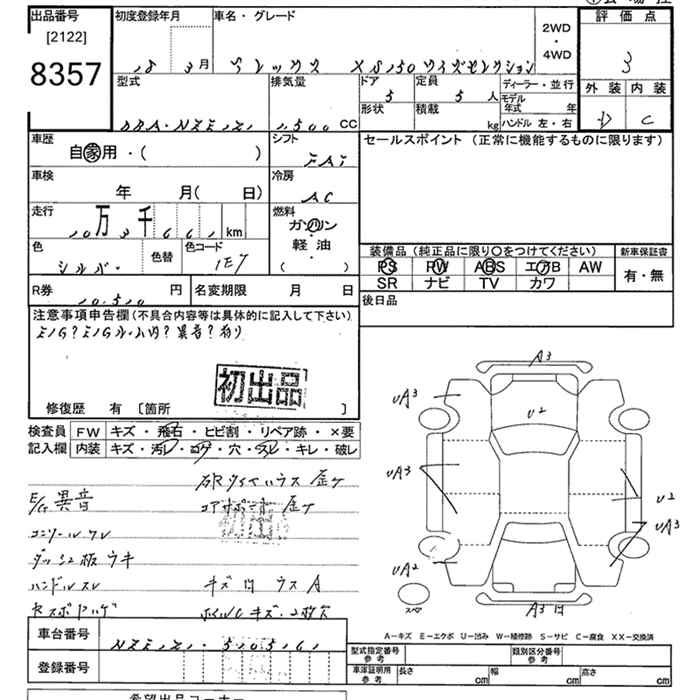 出品番号
[2122]
8357
初度登録年月
18 3月
車名・グレード
2WD
・
4WD
評価点
3
型式
排気量
1,500 CC
ドア
5
定員
5 人
ディーラー・並行
モデル年式 年
形状
積載 kg
ハンドル 左・右
外装 内装
D C
車歴
自家用・( )
シフト
FAT
セールスポイント (正常に機能するものに限ります)
車検
年 月( 日)
冷房
AC
走行
10万3千661km
燃料
ガソリン
・
軽油
( )
色
シルバー
色替
色コード
1E7
装備品 (純正品に限り〇をつけてください)
PS PW ABS エアB AW
SR ナビ TV カワ
新車保証書
有・無
R券
10,510 円
名変期限 月 日
後日品
注意事項申告欄 (不具合内容等は具体的に記入して下さい)
初出品
修復歴 有 [箇所 ]
検査員
記入欄
FW キズ・飛石・ヒビ割・リペア跡・×要
内装 キズ・汚レ・コゲ・穴・スレ・キレ・破レ
E/G 異音
コアサポート 歪ケ
ダッシュ板 ウキ
ハンドルスレ
キズ 凹 ウス A
A3
UA3
U2
UA3
U2
UA3
UA2
スペ
A3凹
A-キズ E-エクボ U-凹み W-補修跡 S-サビ C-腐食 XX-交換済
車台番号
NZE121-505161
登録番号
型式指定番号
参考
類別区分番号
参考
車庫証明用
参考
長さ cm
幅 cm
高さ cm
希望出品コーナー